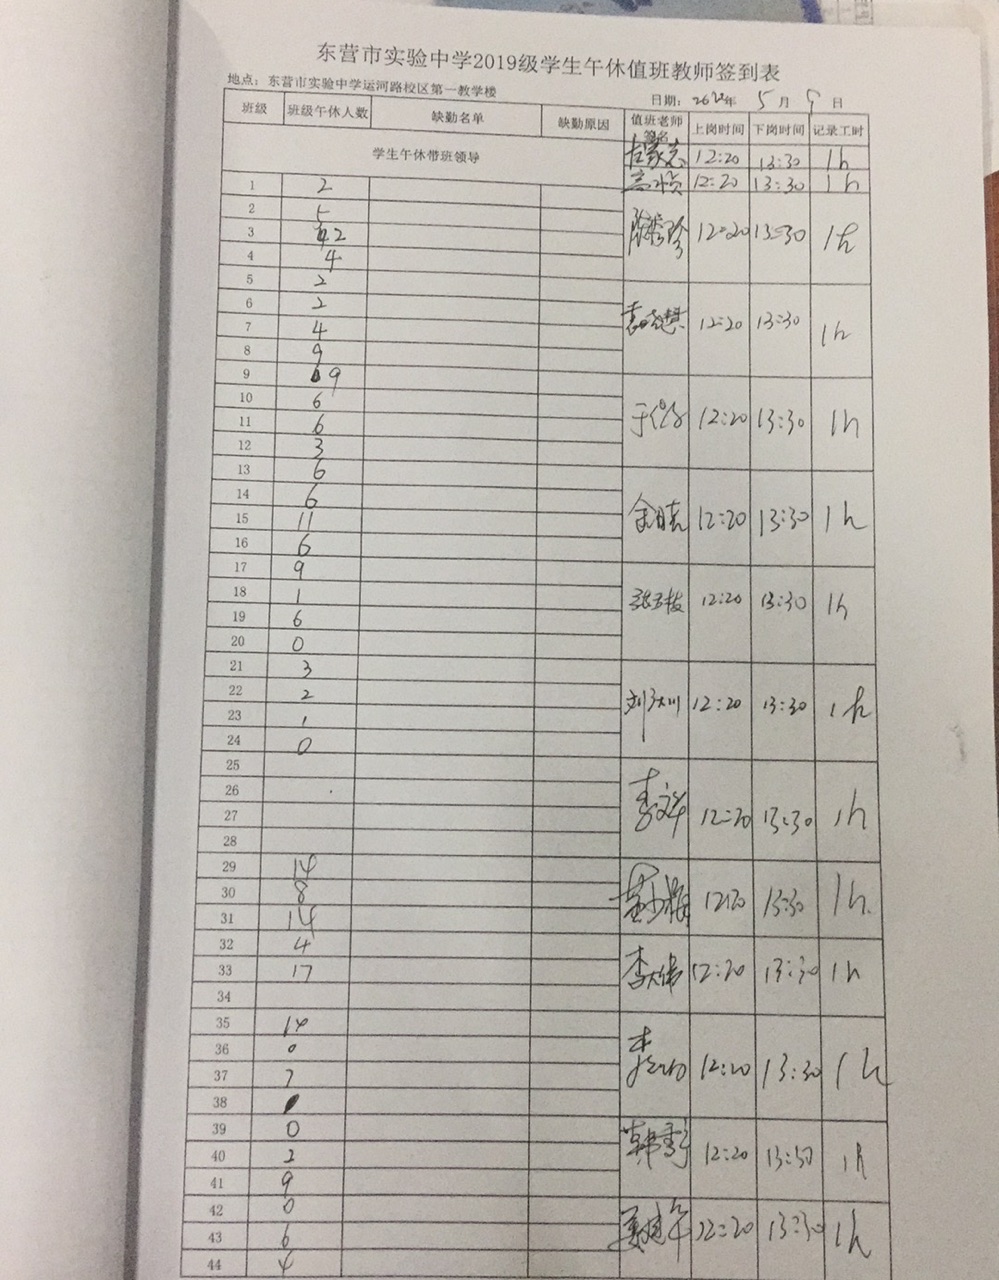 东营市实验中学2019级学生午休值班教师签到表
地点：东营市实验中学运河路校区第一教学楼
日期：2020年 5 月 9 日
班级 班级午休人数 缺勤名单 缺勤原因 值班老师签名 上岗时间 下岗时间 记录工时
学生午休带班领导 12:20 13:30 1h
12:20 13:30 1h
1 2
2 5
3 42 12:20 13:30 1h
4 4
5 2
6 2
7 4 12:20 13:30 1h
8 9
9 9
10 6
11 6 12:20 13:30 1h
12 3
13 6
14 6
15 11 12:20 13:30 1h
16 6
17 9
18 1 张玉枝 12:20 13:30 1h
19 6
20 0
21 3
22 2 12:20 13:30 1h
23 1
24 0
25
26 李文华 12:20 13:30 1h
27
28
29 14
30 8 12:20 13:30 1h.
31 14
32 4
33 17 李大伟 12:20 13:30 1h
34
35 14
36 0 12:20 13:30 1h
37 7
38
39 0
40 2 12:20 13:30 1h
41 9
42 0
43 6 姜建华 12:20 13:30 1h
44 4